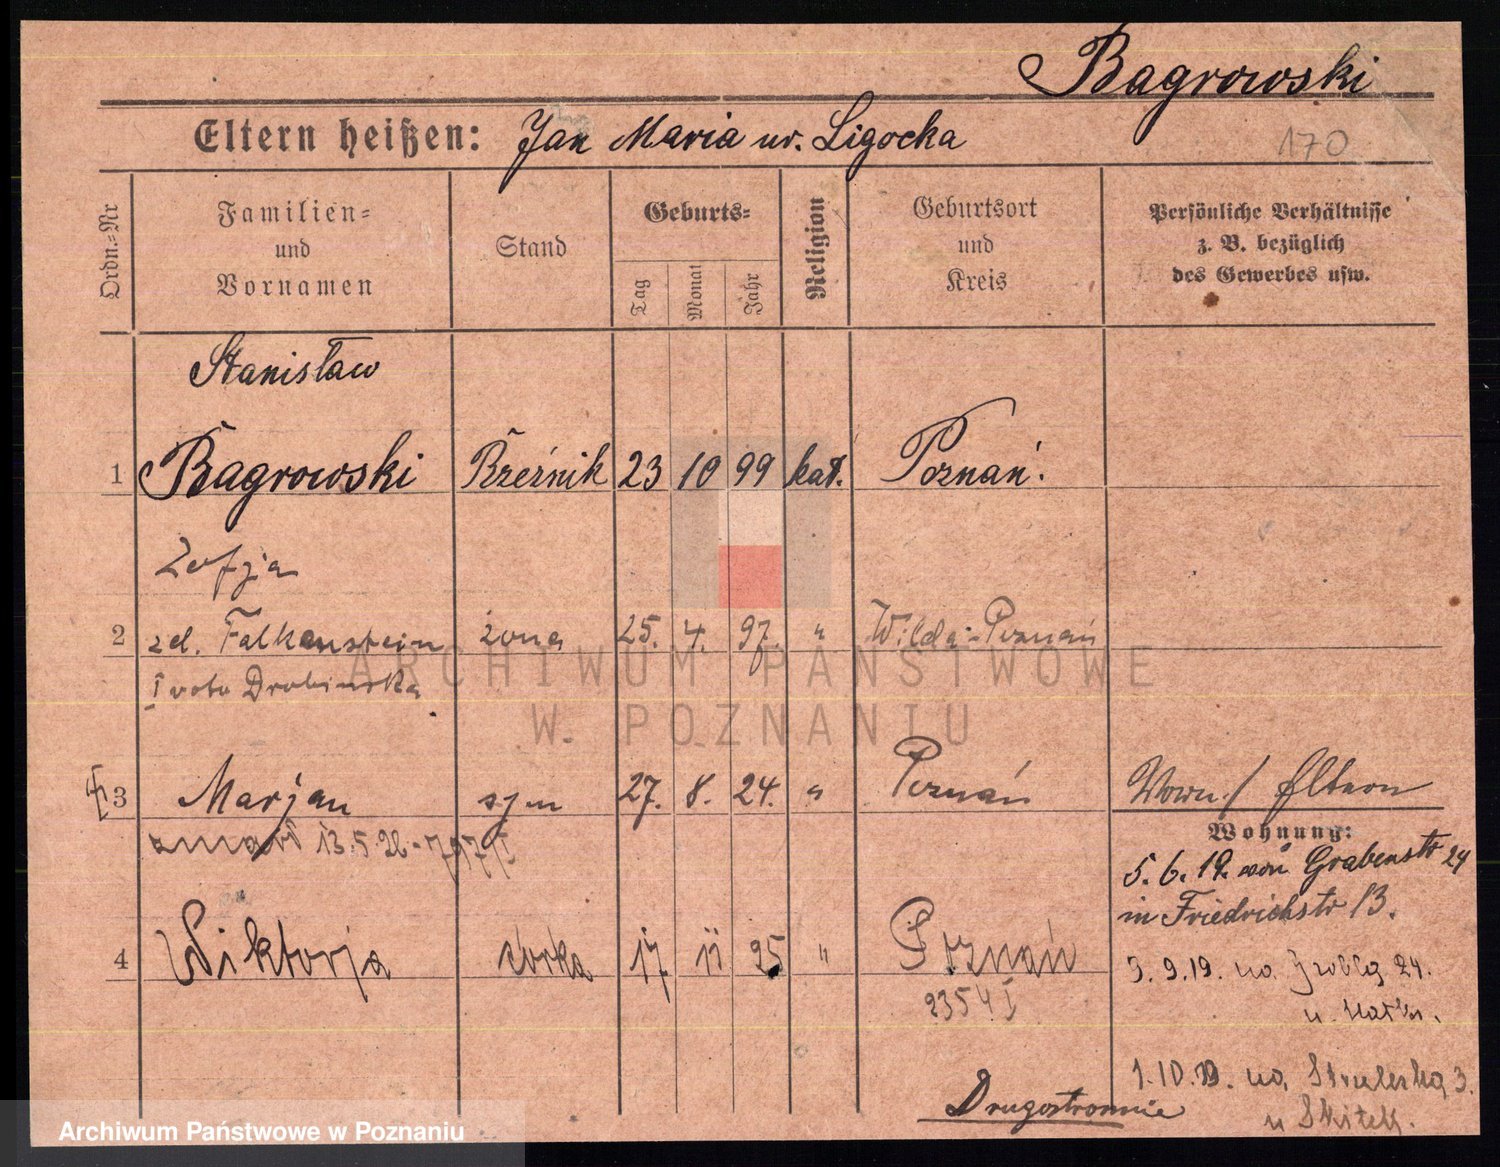 Bagrowski
Eltern heißen: Jan Maria ur. Ligocka
170
Ordn.=Nr
Familien=
und
Vornamen
Stand
Geburts=
Tag
Monat
Jahr
Religion
Geburtsort
und
Kreis
Persönliche Verhältnisse
z. B. bezüglich
des Gewerbes usw.
Stanisław
1 Bagrowski Rzeźnik 23 10 99 kat. Poznań.
Zofja
2 zd. Falkenstein żona 25. 4. 97. " Wilda-Poznań
I voto Drobinska
3 Marjan syn 27. 8. 24. " Poznań
zmarł 13.5.26 - 797/I
4 Wiktorja córka 17 11 25 " Poznań
2354 I
Drugostronnie
Eltern
Wohnung:
5. 6. 19. von Grabenstr 24
in Friedrichstr 13.
3. 9. 19. na Grobla 24.
1. 10. 19. na Strzelecka 3.
u
ARCHIWUM PAŃSTWOWE
W POZNANIU
Archiwum Państwowe w Poznaniu